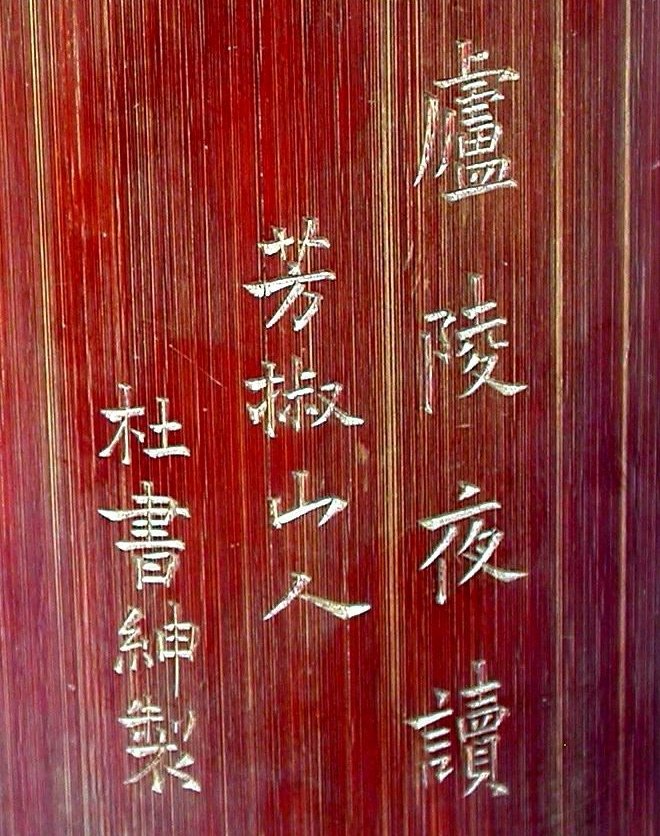 廬陵夜讀
芳椒山人
杜書紳製